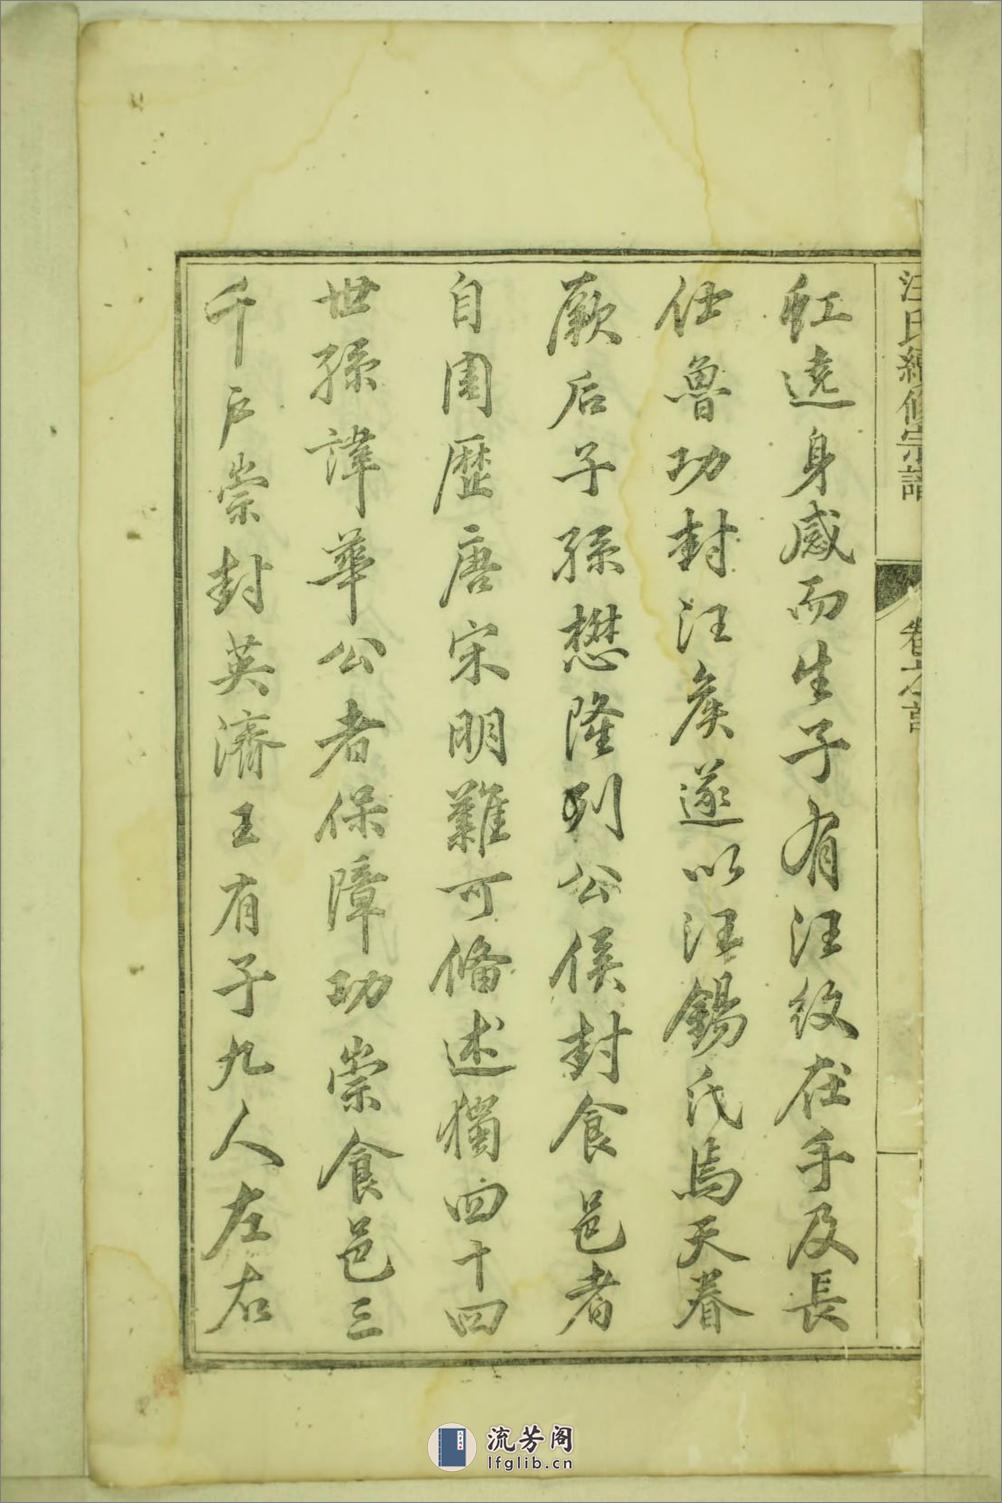 汪氏續修宗譜
卷之首
虹遶身感而生子有汪紋在手及長
仕魯功封汪矦遂以汪錫氏焉天眷
厥后子孫懋隆列公侯封食邑者
自周歷唐宋明難可備述獨四十四
世孫諱華公者保障功崇食邑三
千戶崇封英濟王有子九人左右
流芳阁
lfglib.cn